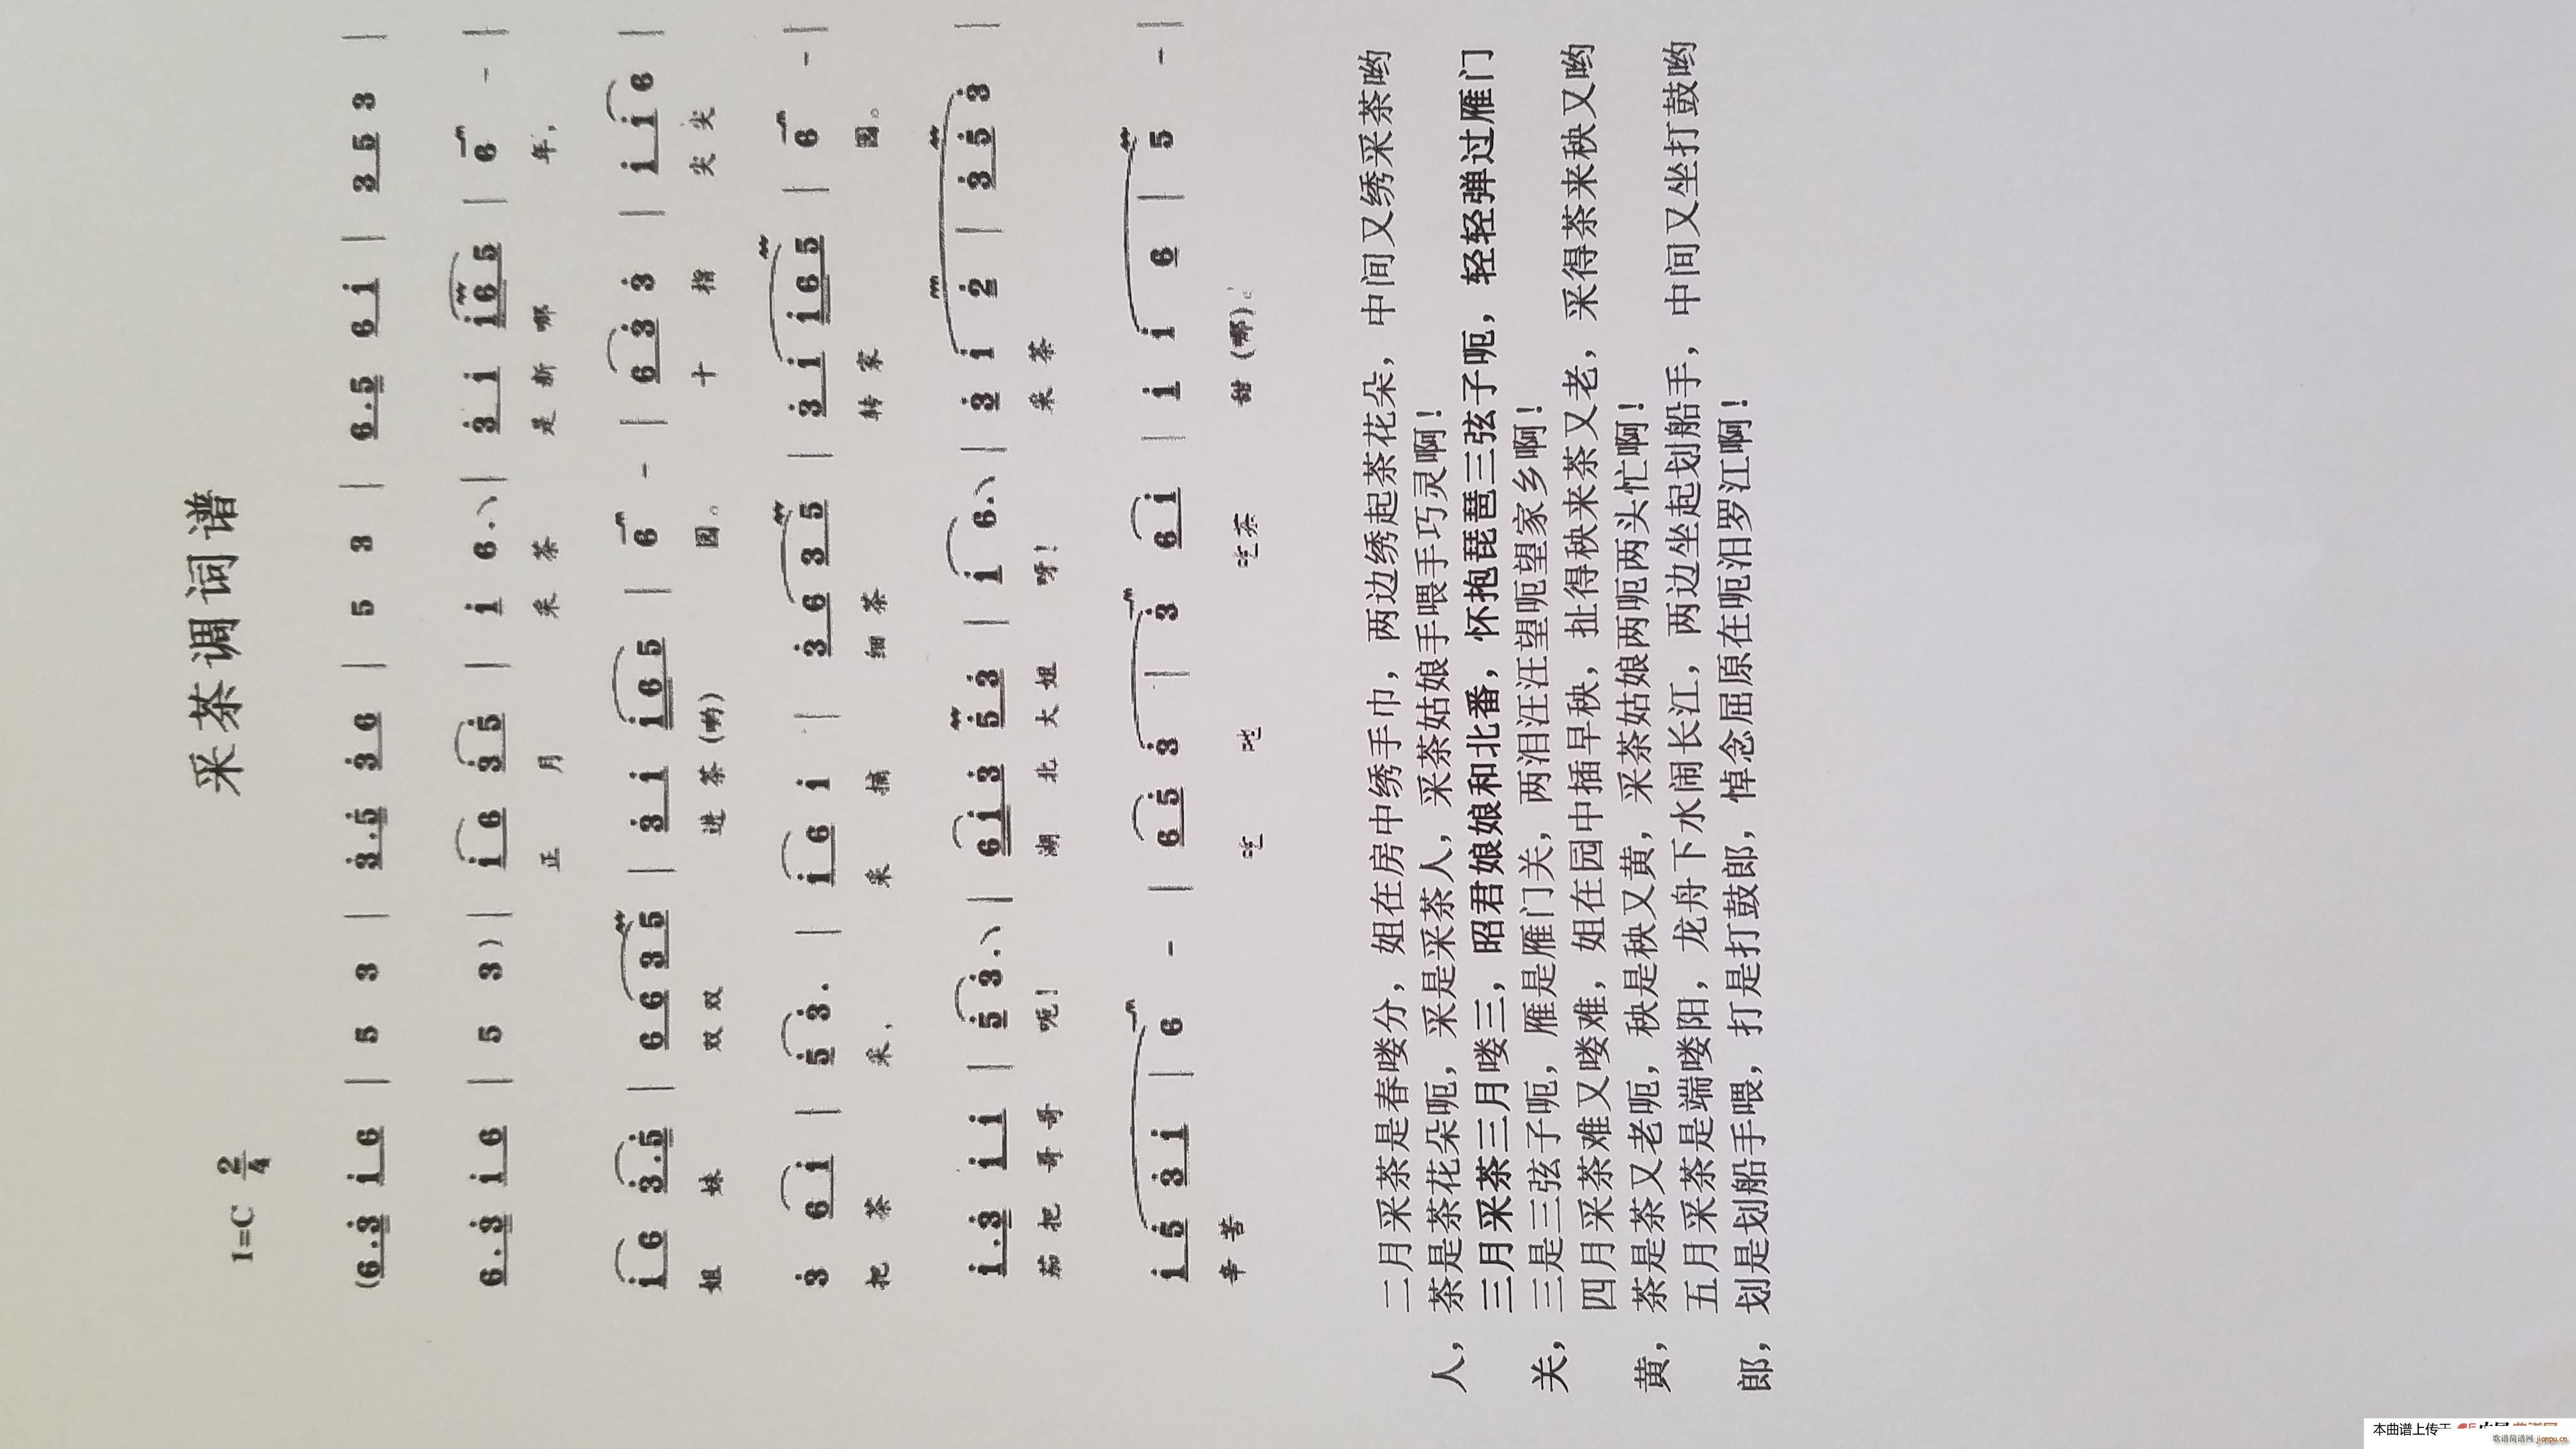 采茶调词谱
1=C 2/4
(6.3 i6 | 5 3 | 3.5 36 | 5 3 | 6.5 6i | 35 3 |
6.3 i6 | 5 3) | i6 35 | i 6. | 3i i65 | 6 - |
正 月 采 茶 是 新 哪 年,
i6 3.5 | 66 35 | 3i i65 | 6 - | 63 3 | ii 6 |
姐 妹 双 双 进 茶 (哟) 园。 十 指 尖 尖
3 6i | 5 3. | i6 i | 36 35 | 3i i65 | 6 - |
把 茶 采, 采 摘 细 茶 转 家 园。
i.3 ii | 5 3. | 6i3 53 | i 6. | 3 i 2 | 35 3 |
茄 把 哥 哥 呃! 湖 北 大 姐 呀! 采 茶
i5 3i | 6 - | 65 3 | 3 6i | i i 6 | 5 - |
辛 苦 吃 吃 茶 甜 (哪)。
二月采茶是春喽分，姐在房中绣手巾，两边绣起茶花朵，中间又绣采茶哟
人，茶是茶花朵呃，采是采茶人，采茶姑娘手喂手巧灵啊！
三月采茶三月喽三，昭君娘娘和北番，怀抱琵琶三弦子呃，轻轻弹过雁门
关，三是三弦子呃，雁是雁门关，两泪汪汪望呃望家乡啊！
四月采茶难又喽难，姐在园中插早秧，扯得秧来茶又老，采得茶来秧又哟
黄，茶是茶又老呃，秧是秧又黄，采茶姑娘两呃两头忙啊！
五月采茶是端喽阳，龙舟下水闹长江，两边坐起划船手，中间又坐打鼓哟
郎，划是划船手喂，打是打鼓郎，悼念屈原在呃汨罗江啊！
本曲谱上传于
歌谱简谱网 jianpu.cn